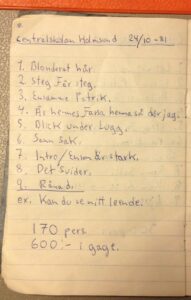 Centralskolan Holmsund 24/10-81
1. Blonderat hår.
2. Steg För steg.
3. Ensamme Patrik.
4. På farlig där jag.
5. Blick under Lugg.
6. Samma Sak.
7. Intro/Ensam är stark.
8. Det Svider.
9. Rånad.
ex. Kan du se mitt leende.
170 pers.
600:- i gage.